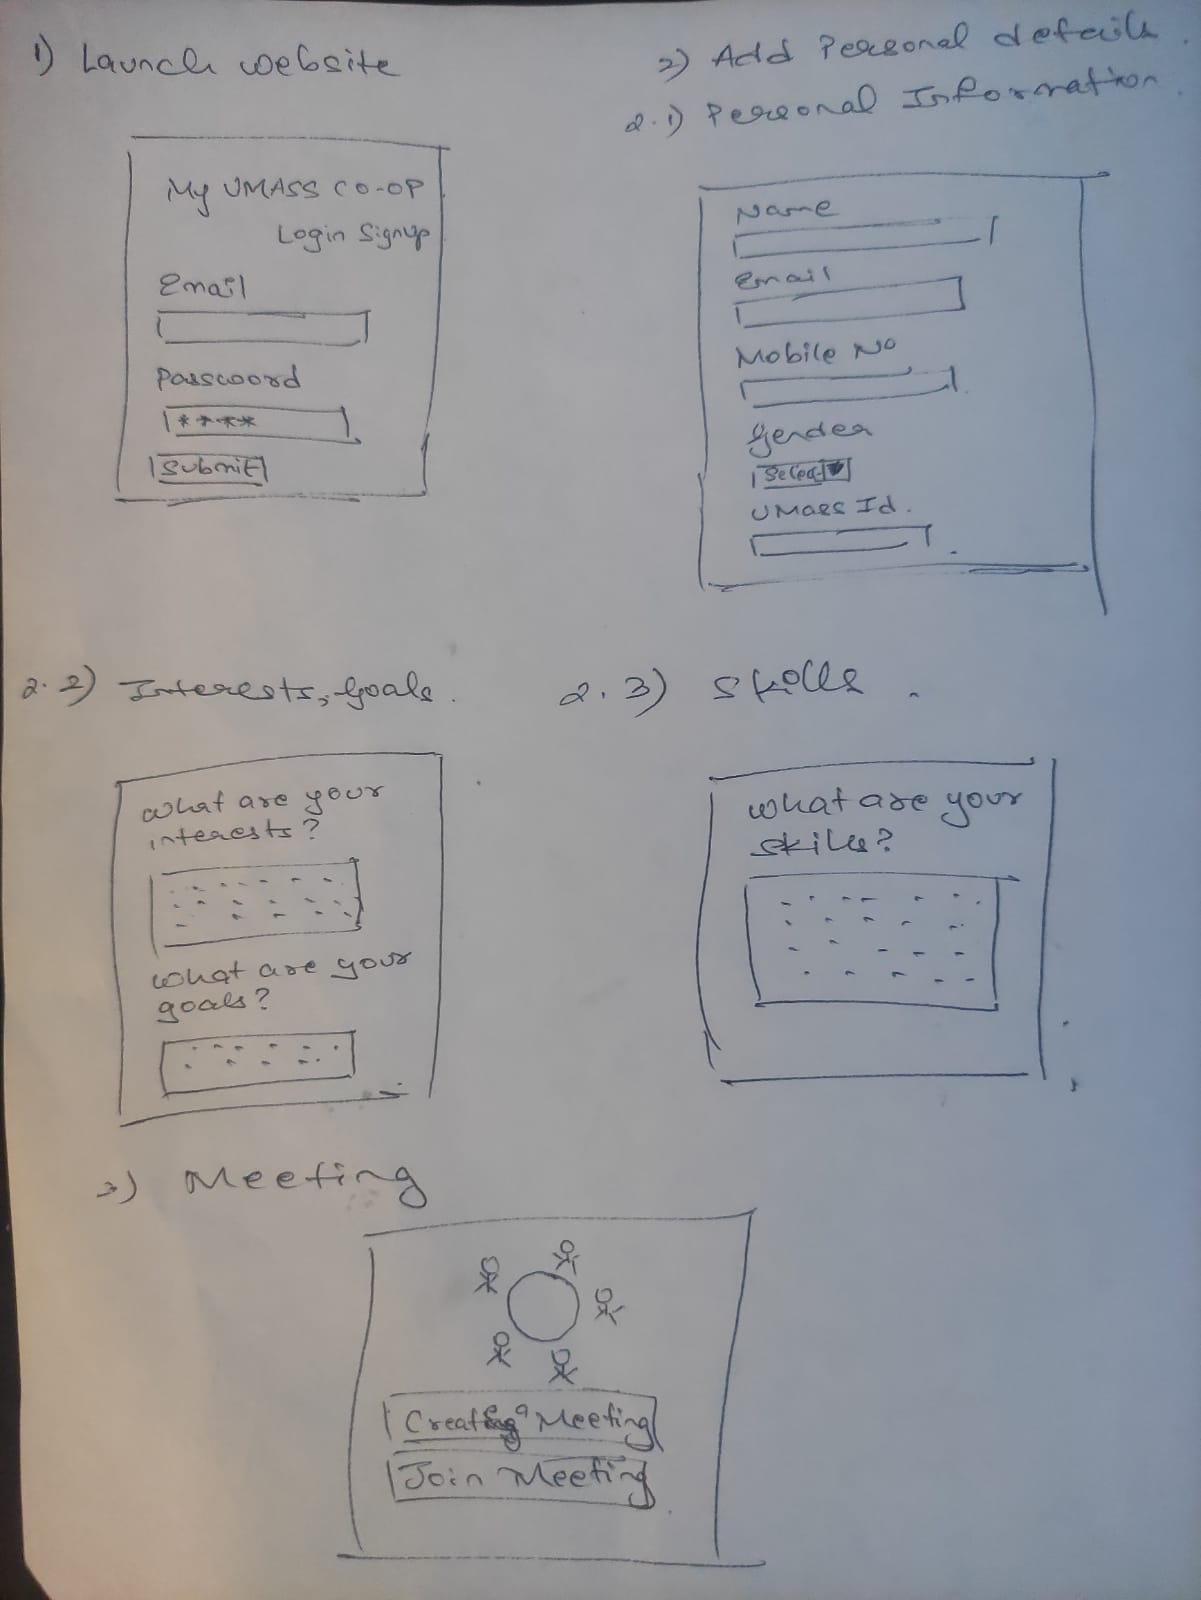 1) Launch website
My UMASS CO-OP
Login Signup
Email
Password
****
Submit
2) Add Personal details.
2.1) Personal Information.
Name
Email
Mobile No
Gender
Select
UMass Id.
2.2) Interests, Goals.
What are your
interests?
What are your
goals?
2.3) Skills.
What are your
skills?
3) Meeting
Meeting
Join Meeting